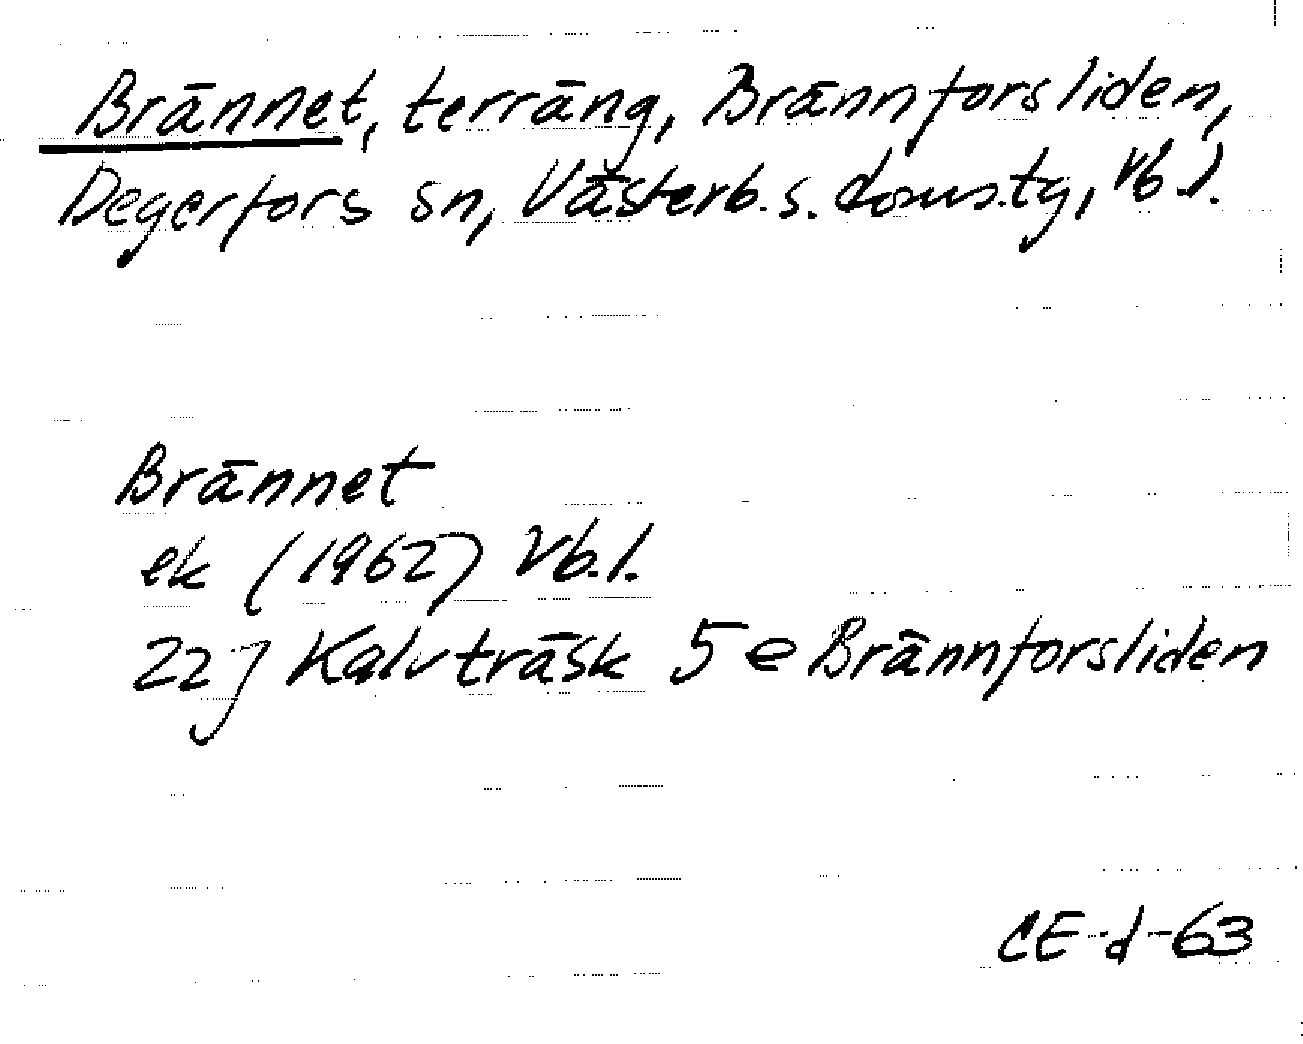 Brännet, terräng, Brännforsliden,
Degerfors sn, Västerb. s. doms.tg, Vb. l.
Brännet
ek (1962) Vb. l.
22 J Kalvträsk 5 e Brännforsliden
CE-d-63